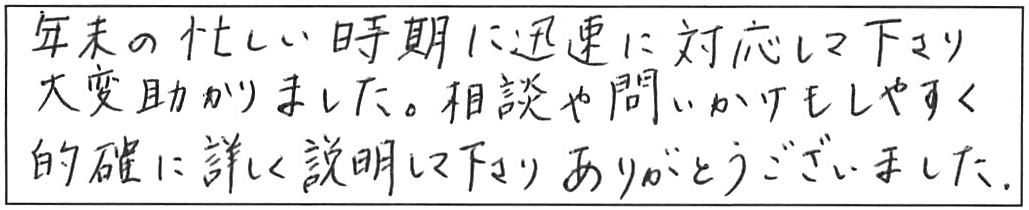 年末の忙しい時期に迅速に対応して下さり
大変助かりました。相談や問いかけもしやすく
的確に詳しく説明して下さりありがとうございました.